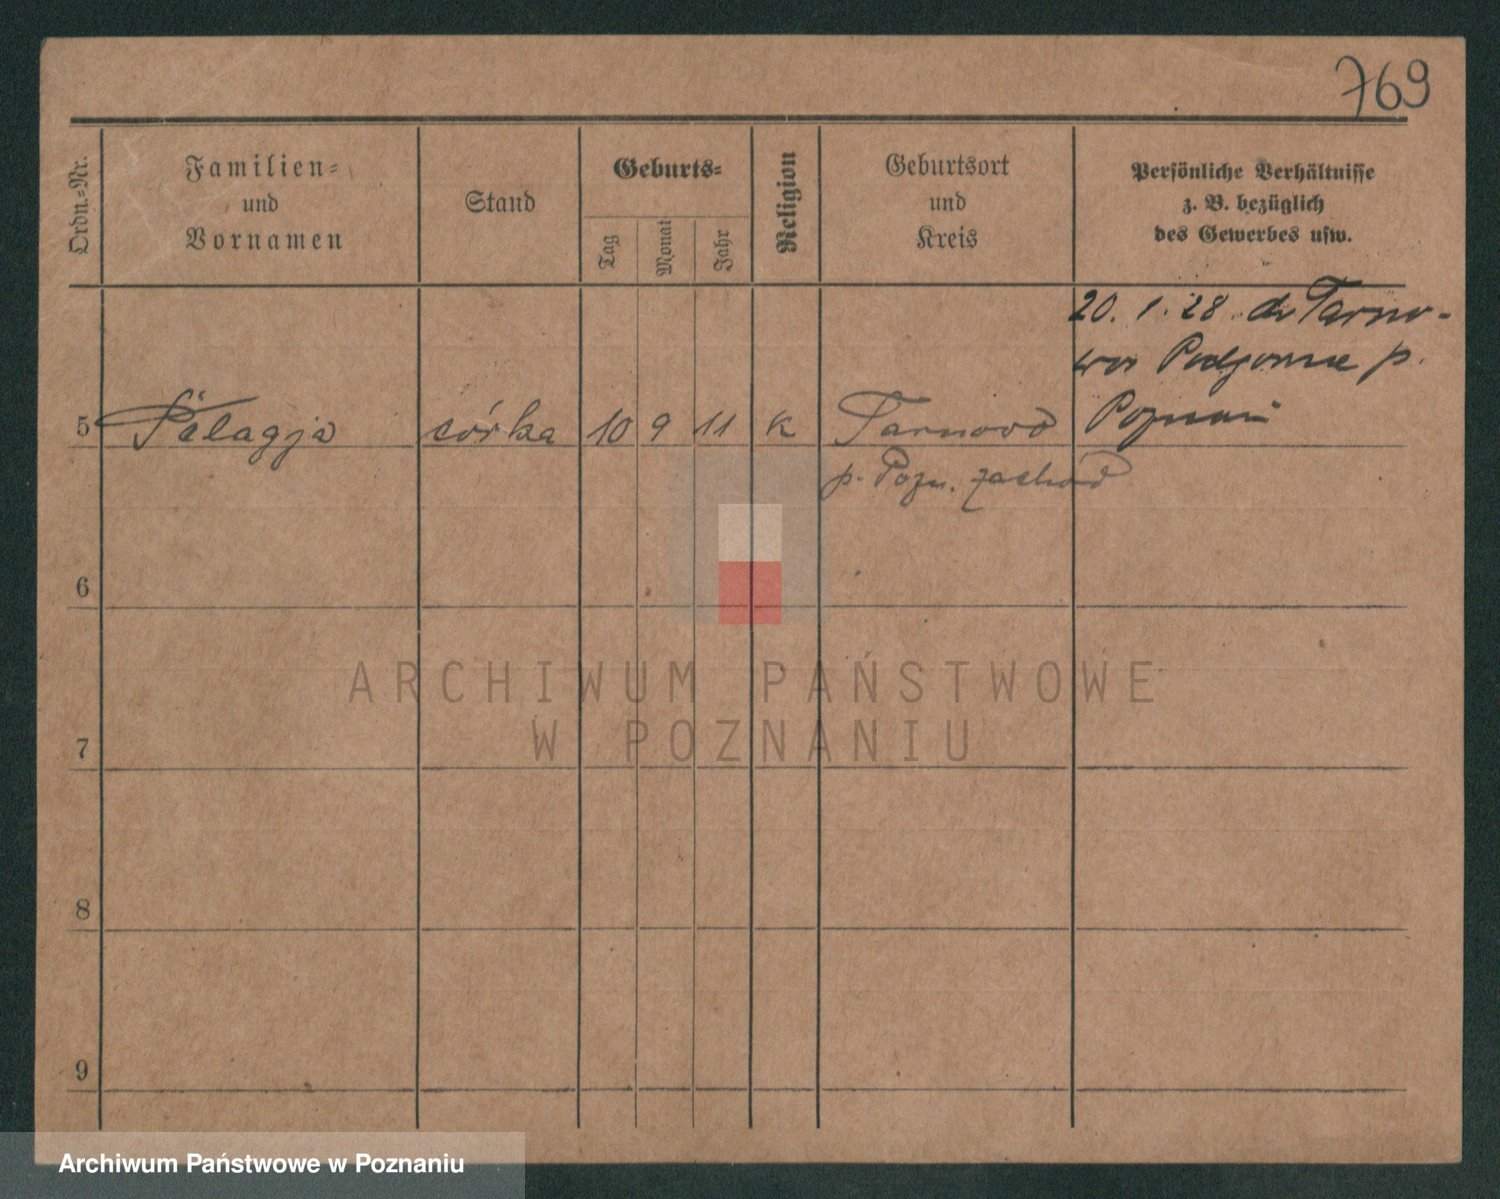 769
Ordn.=Nr.
Familien=
und
Vornamen
Stand
Geburts=
Tag
Monat
Jahr
Religion
Geburtsort
und
Kreis
Persönliche Verhältnisse
z. B. bezüglich
des Gewerbes usw.
20. 1. 28 do Tarno-
wa Podgorne p.
Poznań
5 Pelagja córka 10 9 11 K Tarnowo
p. Pozn. zachód
6
7
8
9
ARCHIWUM PAŃSTWOWE
W POZNANIU
Archiwum Państwowe w Poznaniu